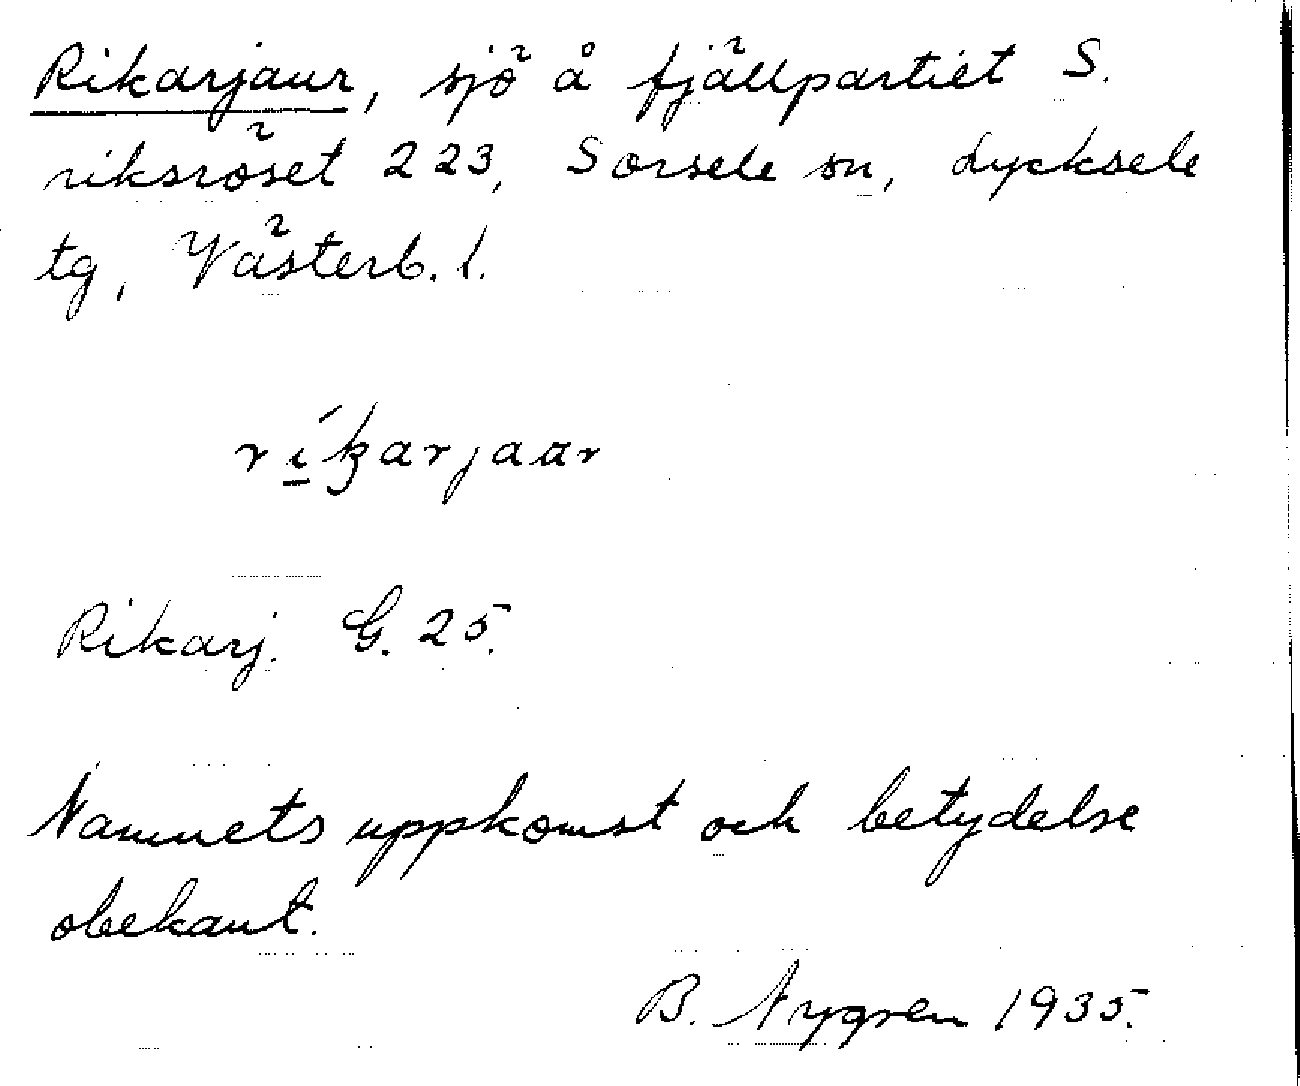 Rikarjaur, sjö å fjällpartiet S.
riksröset 223, Sorsele sn, Lycksele
tg, Västerb. l.
ríkarjaar
Rikarj. G. 25.
Namnets uppkomst och betydelse
obekant.
B. Nygren 1935.